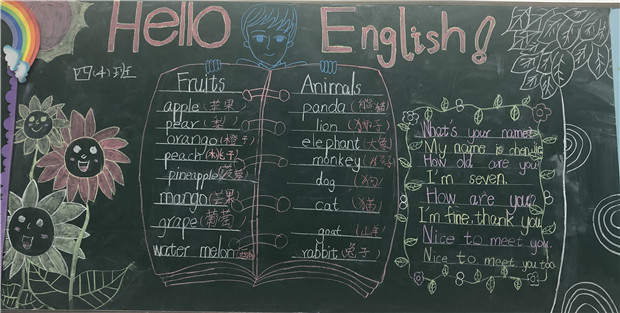 Hello English!
四(4)班
Fruits
apple (苹果)
pear (梨)
orango (橙子)
peach (桃子)
pineapple (菠萝)
mango (芒果)
grape (葡萄)
water melon
Animals
panda (熊猫)
lion (狮子)
elephant (大象)
monkey
dog (狗)
cat (猫)
goat (山羊)
rabbit (兔子)
What's your name?
My name is
How old are you?
I'm seven.
How are you?
I'm fine, thank you.
Nice to meet you.
Nice to meet you too.